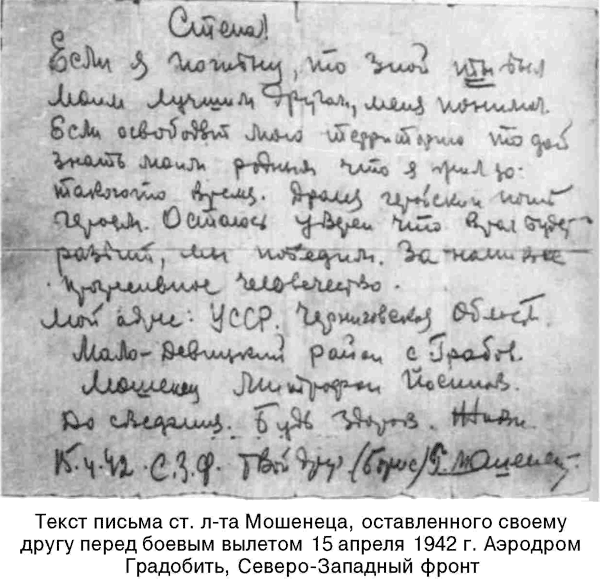 Степа!
Если я погибну, то знай ты был
моим лучшим другом, меня понимал.
Если освободят мою территорию то дай
знать моим родным что я жил до
такого то время. Дрался геройски погиб
героем. Остаюсь уверен что враг будет
разбит, мы победим. За нами все
прогрессивное человечество.
Мой адрес: УССР. Черниговская област.
Мало-Девицкий район с Грабов.
Мошенец Митрофан
До свидания. Будь здоров. Живи.
15.4.42. С.З.Ф. Твой друг (Борис) Мошенец
Текст письма ст. л-та Мошенеца, оставленного своему
другу перед боевым вылетом 15 апреля 1942 г. Аэродром
Градобить, Северо-Западный фронт